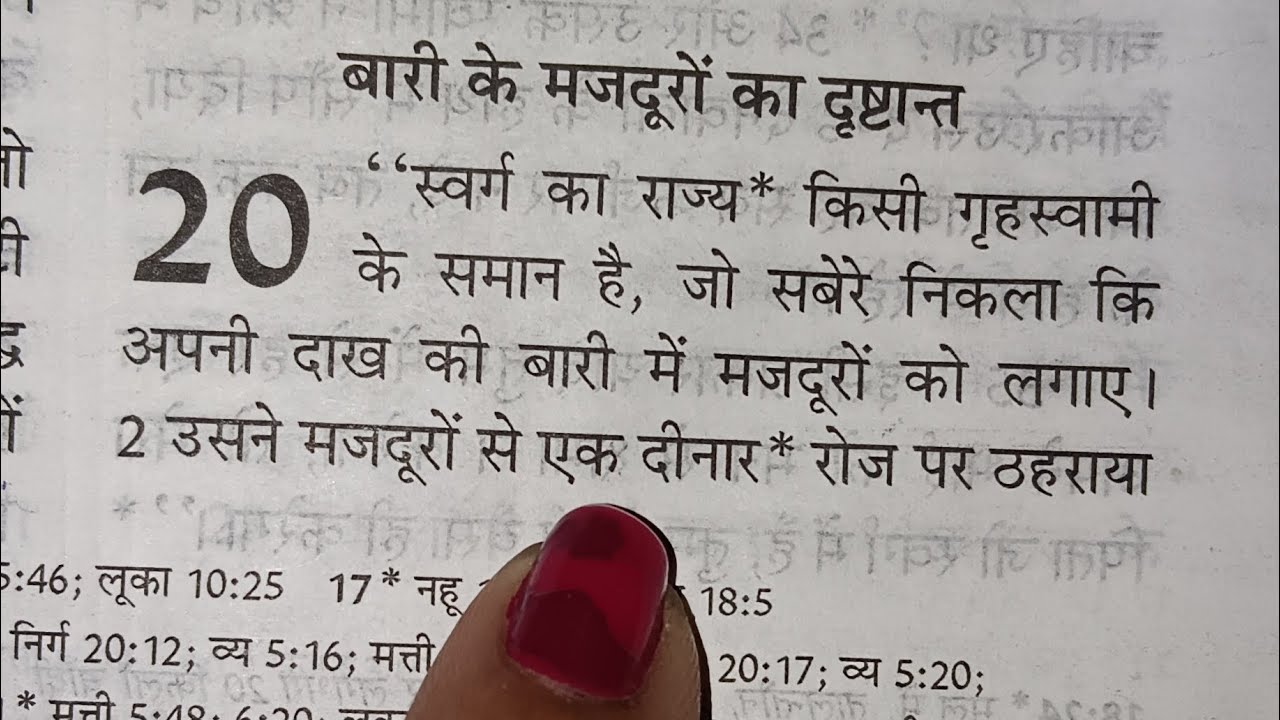 बारी के मजदूरों का दृष्टान्त
20 ‘‘स्वर्ग का राज्य* किसी गृहस्वामी
के समान है, जो सबेरे निकला कि
अपनी दाख की बारी में मजदूरों को लगाए।
2 उसने मजदूरों से एक दीनार* रोज पर ठहराया
5:46; लूका 10:25 17* नहू 18:5
निर्ग 20:12; व्य 5:16; मत्ती 20:17; व्य 5:20;
* मत्ती 5:48; 6:20